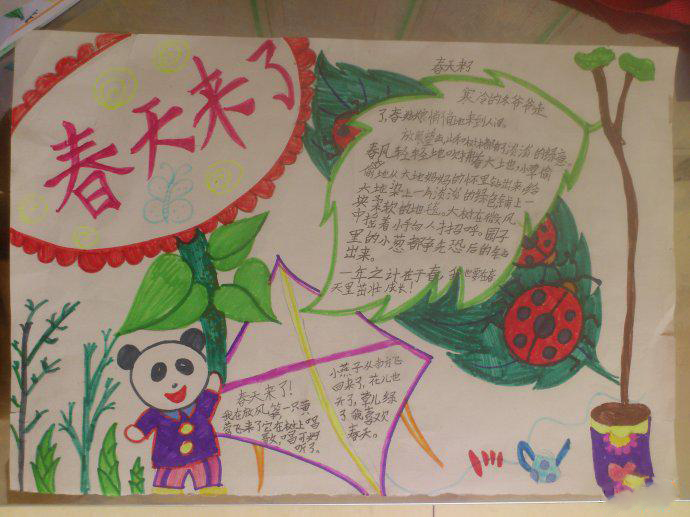 春天来了
春天来了
寒冷的冬爷爷走
了,春姑娘悄悄地来到人间。
放眼望山和树都带淡淡的绿意。
春风轻轻地吹拂着大土地,小草偷
偷地从大地妈妈的怀里钻出来,给
大地染上一片淡淡的绿色,铺上一
块柔软的地毯。大树在微风
中摇着小手向人们招呼。园子
里的小葱都争先恐后的钻
出来。
一年之计在于春,我也要在春
天里茁壮成长!
春天来了!
我在放风筝,一只黄
莺飞来了它在树上唱
歌,唱可好
听了。
小燕子从南方飞
回来了,花儿也
开了,草儿绿
了我喜欢
春天。